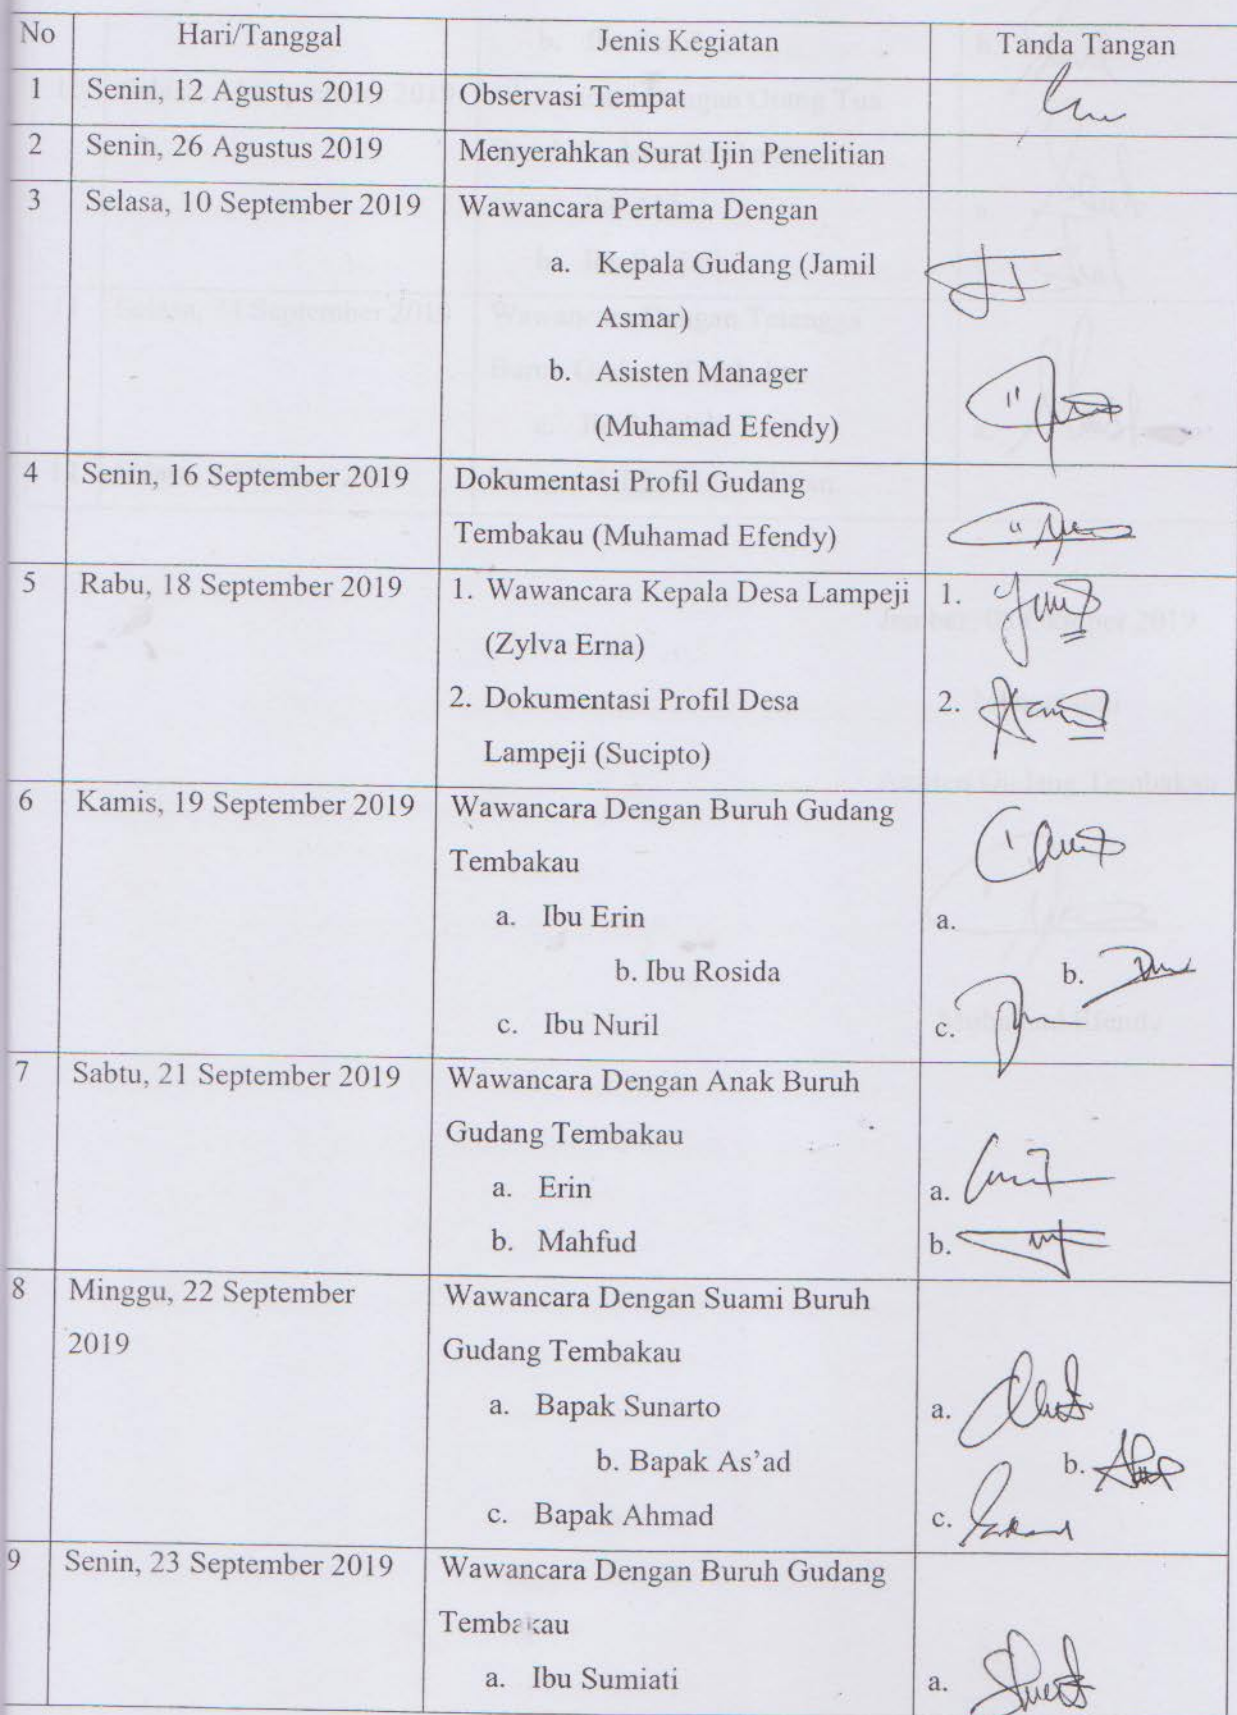 No Hari/Tanggal Jenis Kegiatan Tanda Tangan
1 Senin, 12 Agustus 2019 Observasi Tempat
2 Senin, 26 Agustus 2019 Menyerahkan Surat Ijin Penelitian
3 Selasa, 10 September 2019 Wawancara Pertama Dengan
a. Kepala Gudang (Jamil
Asmar)
b. Asisten Manager
(Muhamad Efendy)
4 Senin, 16 September 2019 Dokumentasi Profil Gudang
Tembakau (Muhamad Efendy)
5 Rabu, 18 September 2019 1. Wawancara Kepala Desa Lampeji 1.
(Zylva Erna)
2. Dokumentasi Profil Desa 2.
Lampeji (Sucipto)
6 Kamis, 19 September 2019 Wawancara Dengan Buruh Gudang
Tembakau
a. Ibu Erin a.
b. Ibu Rosida b.
c. Ibu Nuril c.
7 Sabtu, 21 September 2019 Wawancara Dengan Anak Buruh
Gudang Tembakau
a. Erin a.
b. Mahfud b.
8 Minggu, 22 September Wawancara Dengan Suami Buruh
2019 Gudang Tembakau
a. Bapak Sunarto a.
b. Bapak As'ad b.
c. Bapak Ahmad c.
9 Senin, 23 September 2019 Wawancara Dengan Buruh Gudang
Tembakau
a. Ibu Sumiati a.